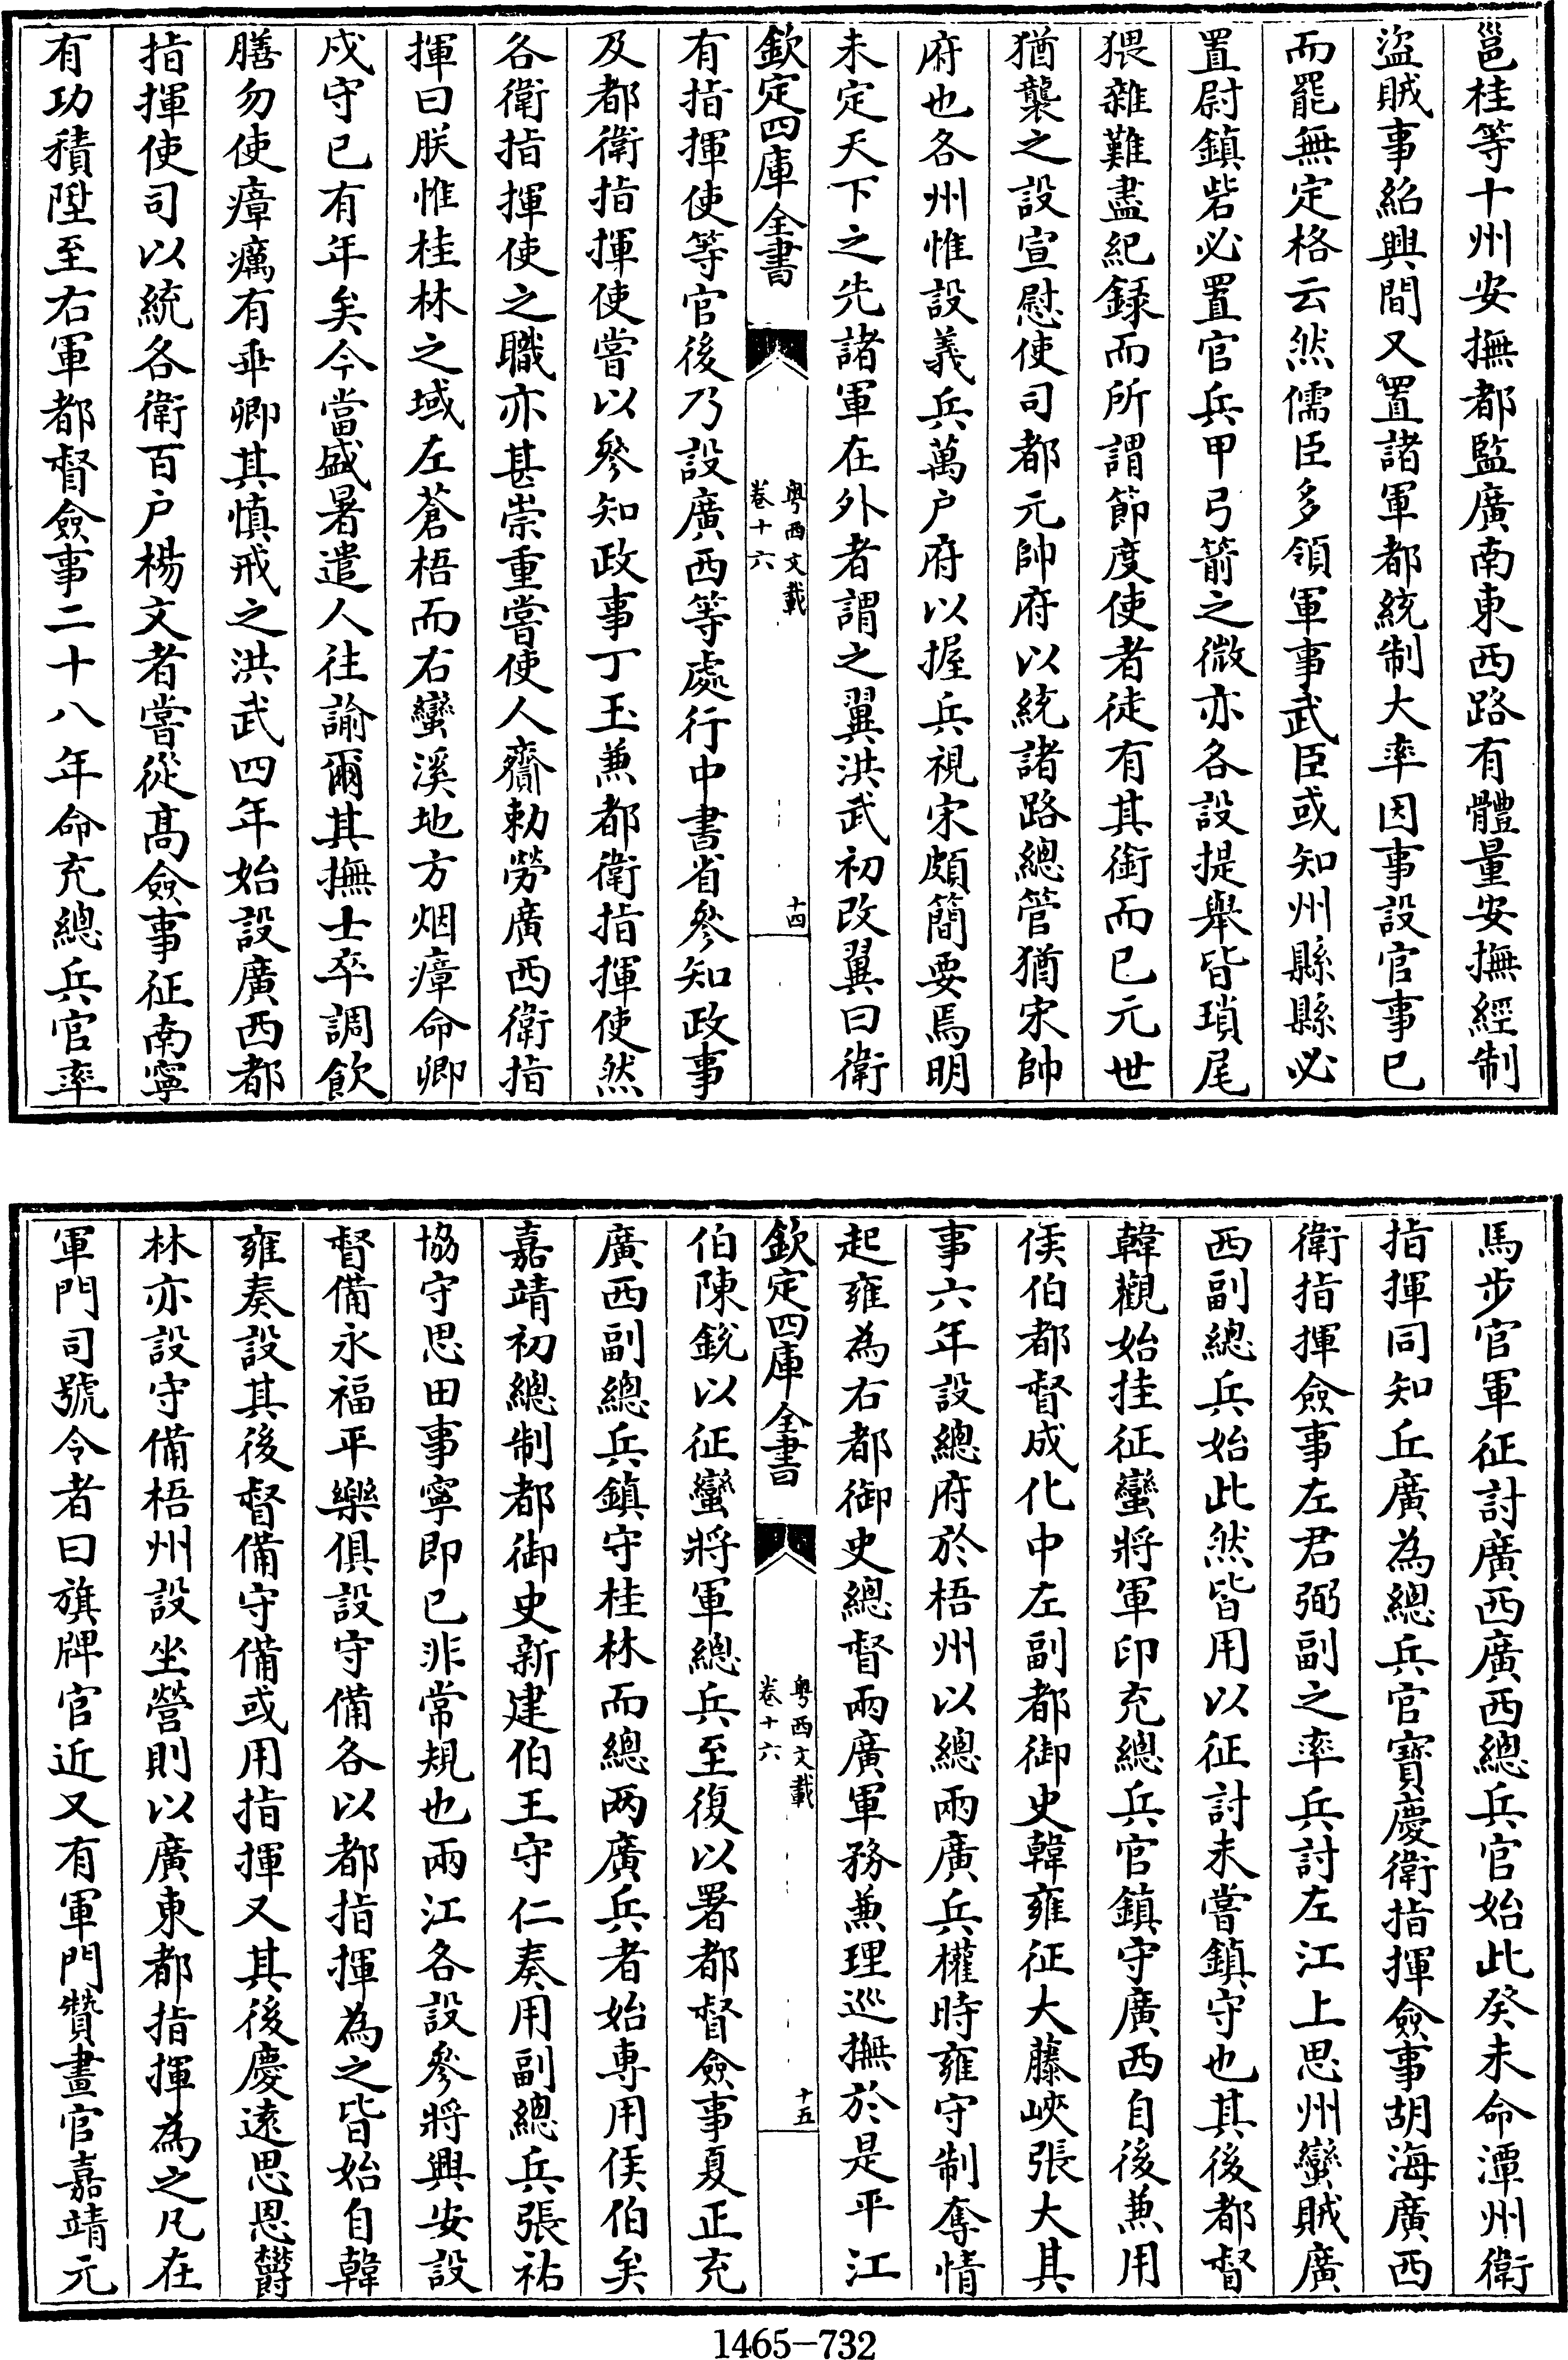 邕桂等十州安撫都監廣南東西路有體量安撫經制
盜賊事紹興間又置諸軍都統制大率因事設官事已
而罷無定格云然儒臣多領軍事武臣或知州縣縣必
置尉鎮砦必置官兵甲弓箭之微亦各設提舉皆瑣尾
猥雜難盡紀錄而所謂節度使者徒有其銜而已元世
猶襲之設宣慰使司都元帥府以統諸路總管猶宋帥
府也各州惟設義兵萬户府以握兵視宋頗簡要焉明
未定天下之先諸軍在外者謂之翼洪武初改翼曰衛
欽定四庫全書
粵西文載
卷十六
十四
有指揮使等官後乃設廣西等處行中書省參知政事
及都衛指揮使嘗以參知政事丁玉兼都衛指揮使然
各衛指揮使之職亦甚崇重嘗使人齎勅勞廣西衛指
揮曰朕惟桂林之域左蒼梧而右蠻溪地方烟瘴命卿
戍守已有年矣今當盛暑遣人往諭爾其撫士卒調飲
膳勿使瘴癘有乖卿其慎戒之洪武四年始設廣西都
指揮使司以統各衛百户楊文者嘗從髙僉事征南寧
有功積陞至右軍都督僉事二十八年命充總兵官率
馬步官軍征討廣西廣西總兵官始此癸未命潭州衛
指揮同知丘廣為總兵官寳慶衛指揮僉事胡海廣西
衛指揮僉事左君弼副之率兵討左江上思州蠻賊廣
西副總兵始此然皆用以征討未嘗鎮守也其後都督
韓觀始挂征蠻將軍印充總兵官鎮守廣西自後兼用
侯伯都督成化中左副都御史韓雍征大藤峽張大其
事六年設總府於梧州以總兩廣兵權時雍守制奪情
起雍為右都御史總督兩廣軍務兼理巡撫於是平江
欽定四庫全書
粵西文載
卷十六
十五
伯陳銳以征蠻將軍總兵至復以署都督僉事夏正充
廣西副總兵鎮守桂林而總两廣兵者始專用侯伯矣
嘉靖初總制都御史新建伯王守仁奏用副總兵張祐
協守思田事寧即已非常規也兩江各設參將興安設
督備永福平樂俱設守備各以都指揮為之皆始自韓
雍奏設其後督備守備或用指揮又其後慶逺思恩欝
林亦設守備梧州設坐營則以廣東都指揮為之凡在
軍門司號令者曰旗牌官近又有軍門贊畫官嘉靖元
1465-732